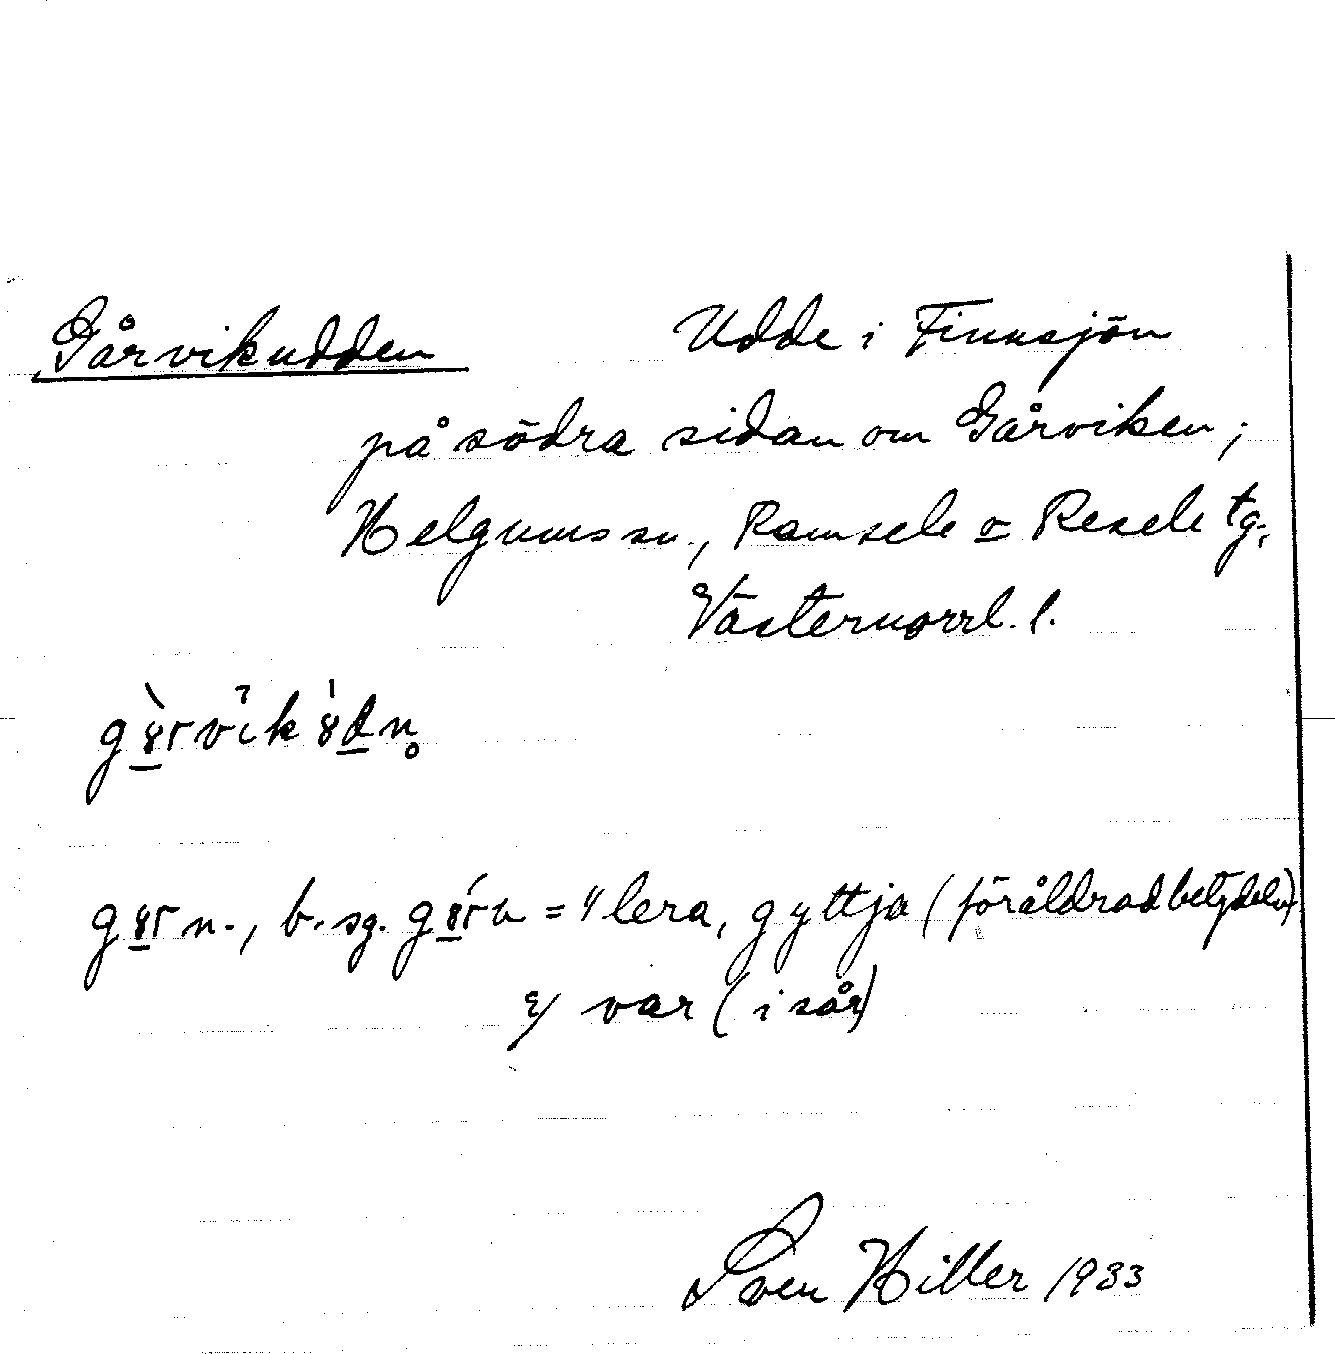 Gårvikudden Udde i Finnsjön
på södra sidan om Gårviken;
Helgums sn., Ramsele o Resele tg.
Västernorrl. l.
n., b. sg. = "lera, gyttja (föråldrad betydelse)
var (i sår)
Sven Hiller 1933